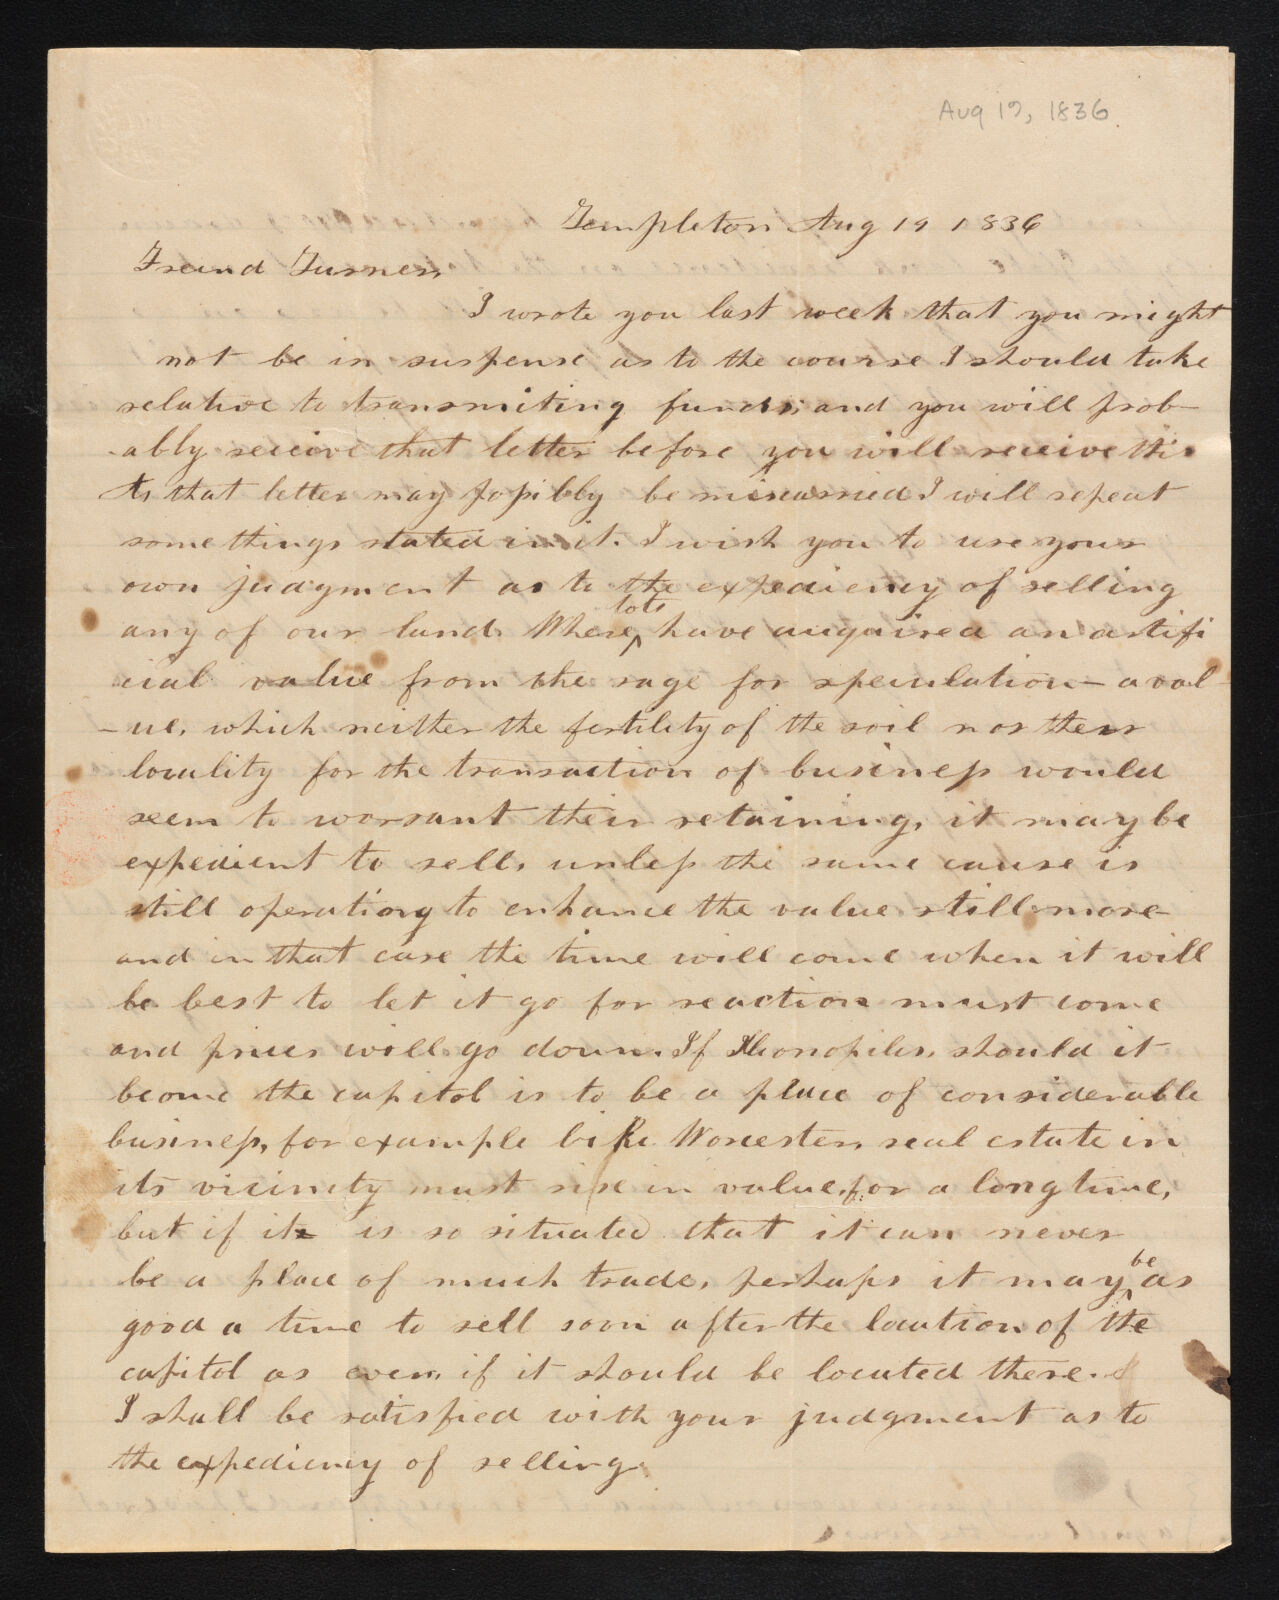 Aug 19, 1836
Templeton Aug 19 1836
Freind Turner,
I wrote you last week that you might
not be in suspense as to the course I should take
relative to transmiting funds; and you will prob-
ably receive that letter before you will receive this
As that letter may possibly be miscarried I will repeat
some things stated in it. I wish you to use your
own judgment as to the expediency of selling
any of our land. Where lots have acquired an artifi
cial value from the rage for speculation - a val-
-ue, which neither the fertility of the soil nor their
locality for the transaction of business would
seem to warrant their retaining, it may be
expedient to sell, unless the same cause is
still operating to enhance the value still more
and in that case the time will come when it will
be best to let it go for reaction must come
and prices will go down. If should it
become the capitol is to be a place of considerable
business, for example like Worcester, real estate in
its vicinity must rise in value, for a long time,
but if it is so situated that it can never
be a place of much trade, perhaps it may be as
good a time to sell soon after the location of the
capitol as ever, if it should be located there.
I shall be satisfied with your judgment as to
the expediency of selling.